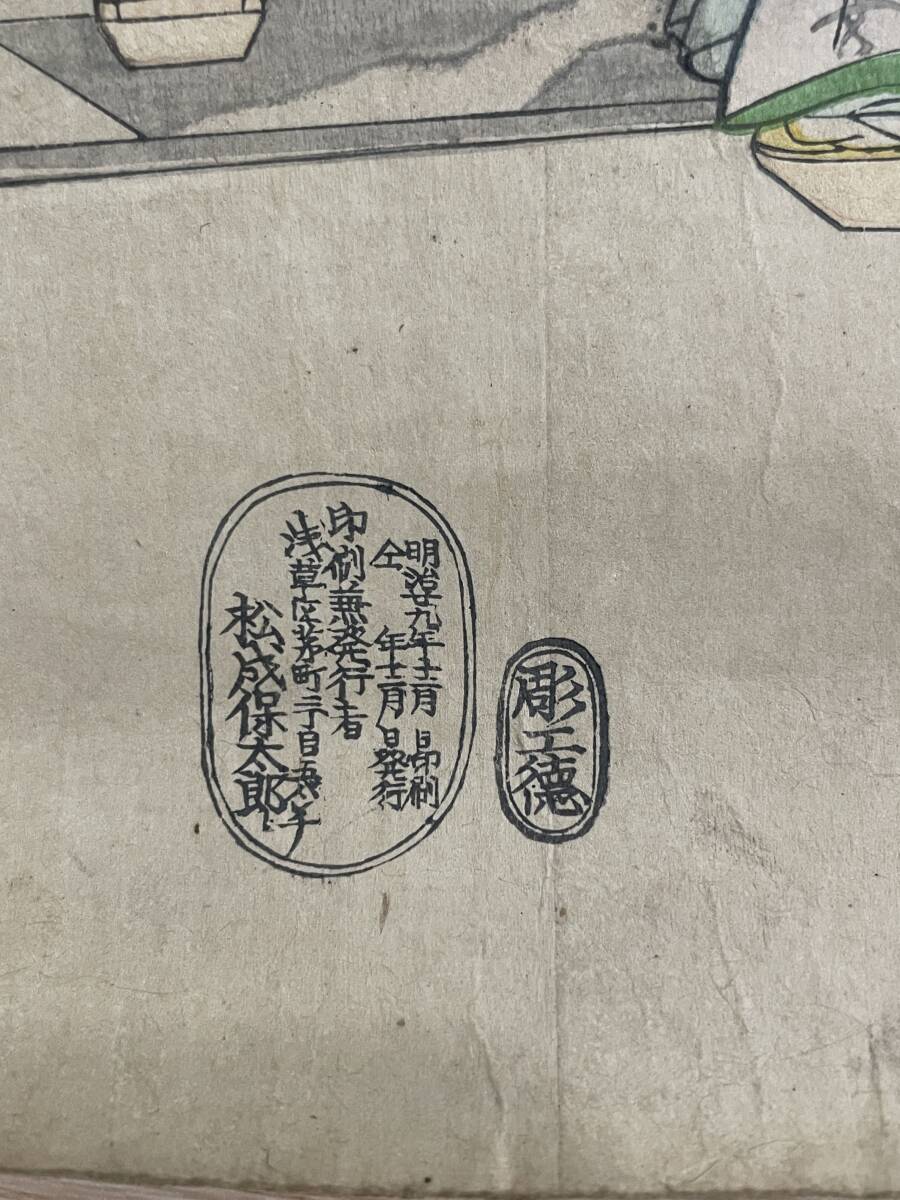 彫工徳
明治廿九年十二月 日印刷
仝 年十二月 日発行
印刷兼発行者
浅草区茅町二丁目五番チ
松成保太郎